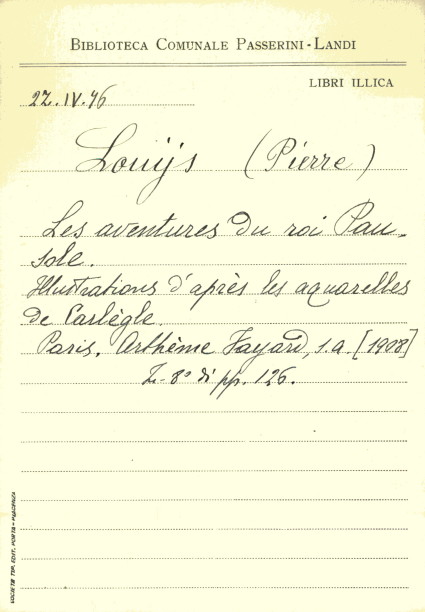 BIBLIOTECA COMUNALE PASSERINI-LANDI
LIBRI ILLICA
22.IV.46
Louÿs (Pierre)
Les aventures du roi Pau-
sole.
Illustrations d'après les aquarelles
de Carlègle
Paris. Arthème Fayard, s.a. [1908]
Z-8° di pp. 126.
SOCIETÀ TIP. EDIT. PORTA - PIACENZA